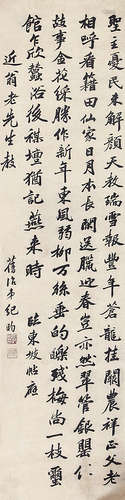 聖主憂民未解顏天教瑞雪報豐年蒼龍挂闕農祥正父老
相呼看籍田仙家日月本長閑送臘迎春豈亦然翠管銀罌傳
故事金花綵勝作新年東風弱柳萬絲垂的皪殘梅尚一枝璽
館乍欣蠶浴後禖壇猶記燕來時 臨東坡帖應
近翁老先生教
紀昀